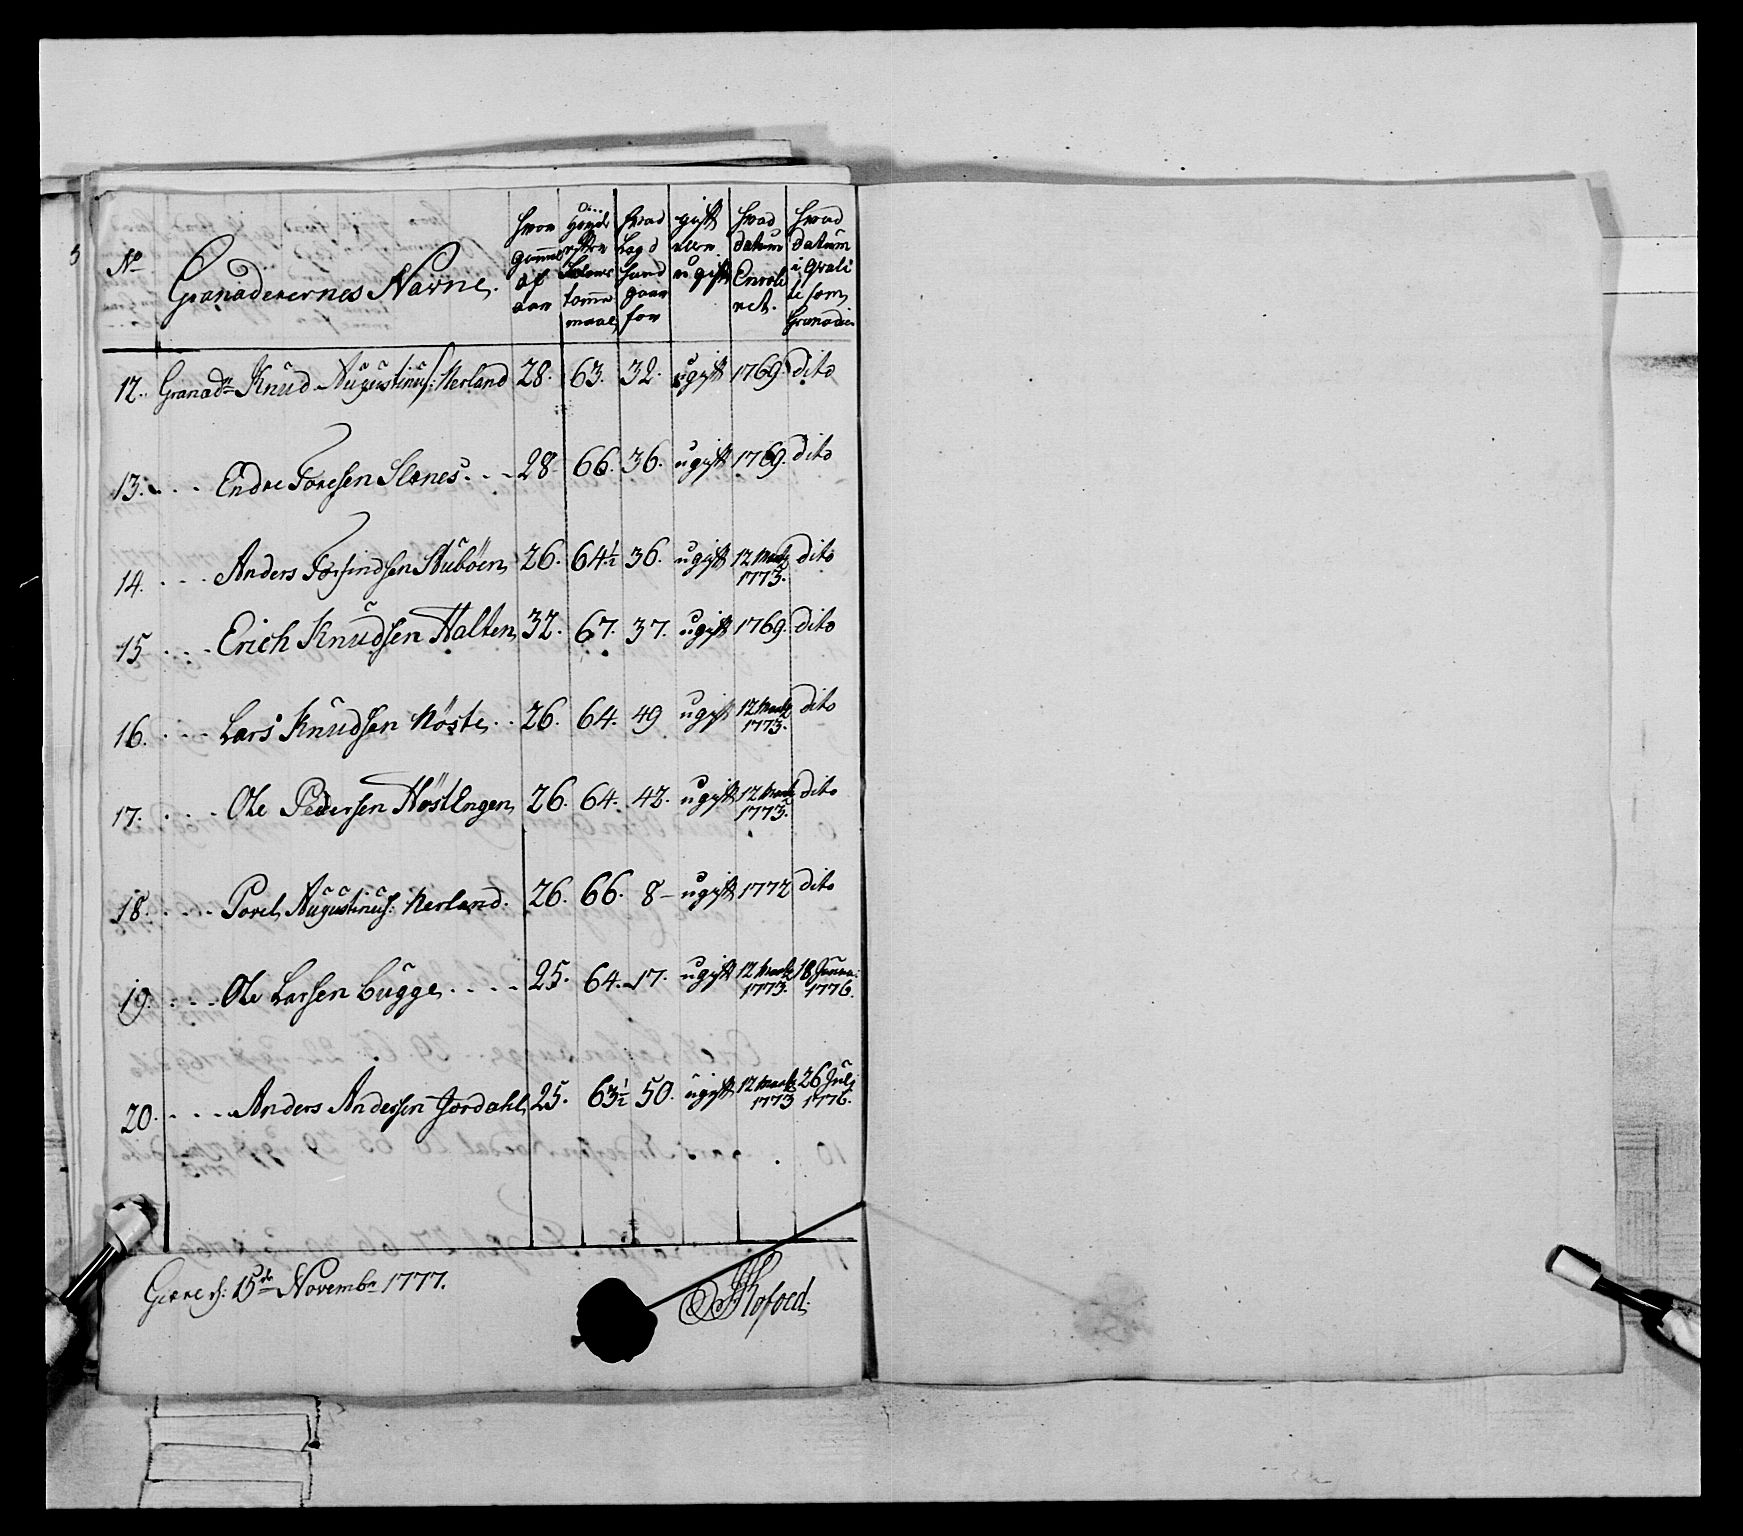 No
Granaderernes Navne.
hvor gammel af aar
efter tomme maal
hvad Lægd hand staar for
gift eller ugift
hvad datum Enrollert.
hvad datum i qvalite som Granadeer
12. Granadr Knud Augustinus: Nerland 28. 63. 32. ugift 1769. dito
13. . . . Endre Toresen Slenes . . 28. 66. 36. ugift 1769. dito
14. . . . Anders Torsindsen Stubøen 26. 64½ 36. ugift 12 Martz 1773. dito
15 . . . Erich Knudsen Halten 32. 67. 37. ugift 1769. dito
16. . . . Lars Knudsen Nöste . . 26. 64. 49 ugift 12 Martz 1773. dito
17. . . . Ole Pedersen Höstengen 26. 64. 42. ugift 12 Martz 1773. dito
18. . . . Povel Augustinus: Nerland. 26. 66. 8 – ugift 1772 dito
19. . . . Ole Larsen Bugge . . . . 25. 64. 17. ugift 12 Martz 1773. 18 Janua: 1776.
20. . . . Anders Andersen Jordahl 25. 63½ 50. ugift 12 Martz 1773 26 Juli 1776.
15de Novembr 1777.
Kofoed.